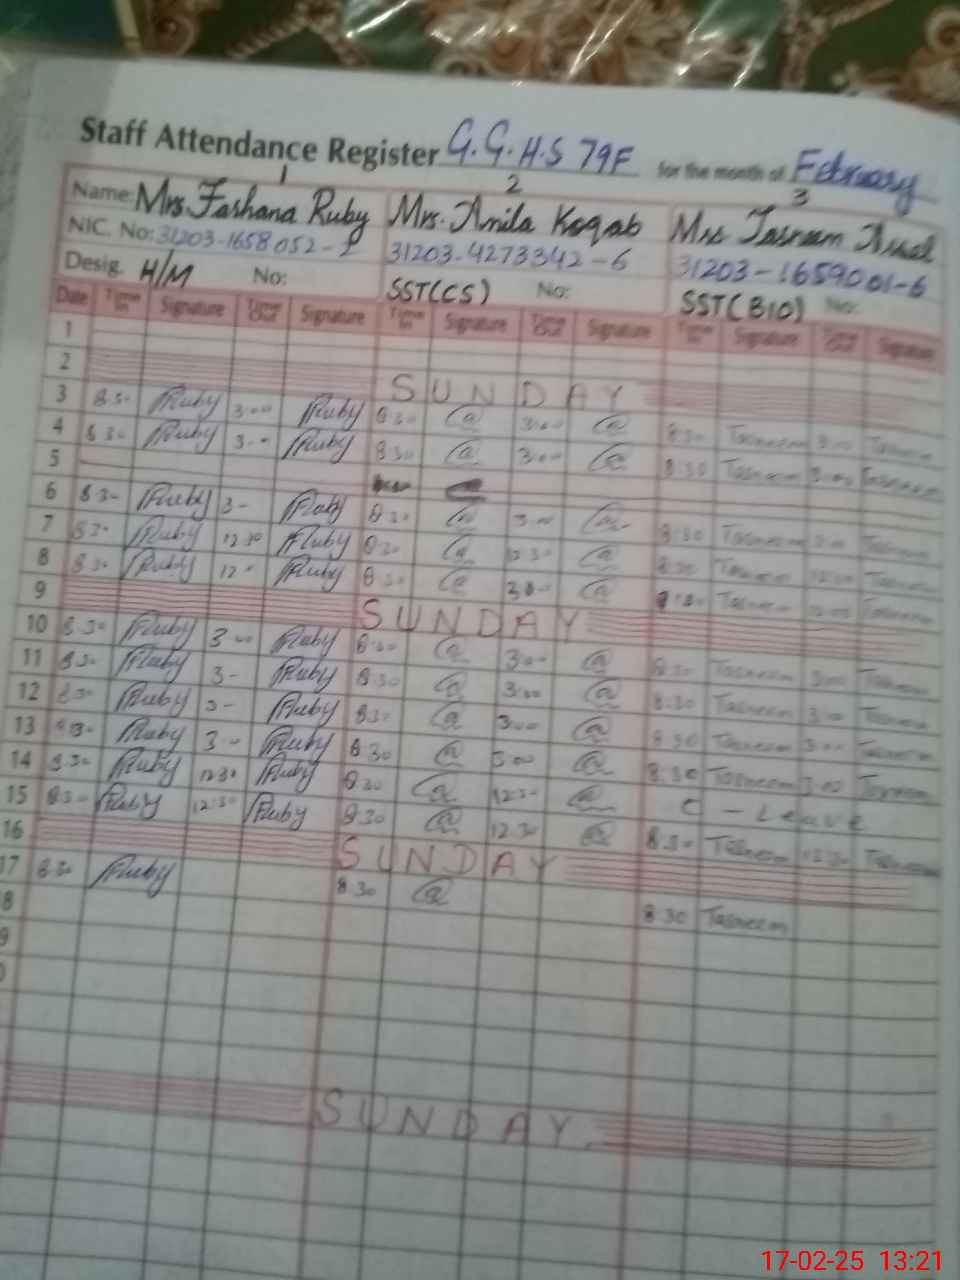 Staff Attendance Register G.G.H.S 79F for the month of February
1 2 3
Name: Mrs. Farhana Ruby Mrs. Anila Koqab Mrs Tasneem
NIC. No: 31203-1658052-2 31203-4273342-6 31203-1659001-6
Desig. H/M No: SST(CS) No: SST(BIO) No:
Date Time In Signature Time Out Signature Time In Signature Time Out Signature Time In Signature Time Out Signature
1
2 SUNDAY
3 8.30 Ruby 3:00 Ruby 8:30 @ 3:00 @ 8:30 Tasneem 3:00 Tasneem
4 8.30 Ruby 3:00 Ruby 8:30 @ 3:00 @ 8:30 Tasneem 3:00 Tasneem
5
6 8.30 Ruby 3- Ruby 8:30 @ 3:00 @ 8:30 Tasneem 3:00 Tasneem
7 8.30 Ruby 12.30 Ruby 8:30 @ 12:30 @ 8:30 Tasneem Tasneem
8 8.30 Ruby 12 Ruby 8:30 @ @ Tasneem Tasneem
9 SUNDAY
10 8.30 Ruby 3.00 Ruby 8:30 @ 3:00 @ 8:30 Tasneem 3:00 Tasneem
11 8.30 Ruby 3- Ruby 8:30 @ 3:00 @ 8:30 Tasneem 3:00 Tasneem
12 8.30 Ruby 3- Ruby 8:30 @ 3:00 @ 8:30 Tasneem 3:00 Tasneem
13 8.30 Ruby 3- Ruby 8:30 @ 3:00 @ 8:30 Tasneem 3:00 Tasneem
14 8.30 Ruby 12.30 Ruby 8:30 @ 12:30 @ C - Leave
15 8.30 Ruby 12:30 Ruby 8:30 @ 12:30 @ 8:30 Tasneem 12:30 Tasneem
16 SUNDAY
17 8.30 Ruby 8:30 @ 8:30 Tasneem
8
9
0
SUNDAY
17-02-25 13:21